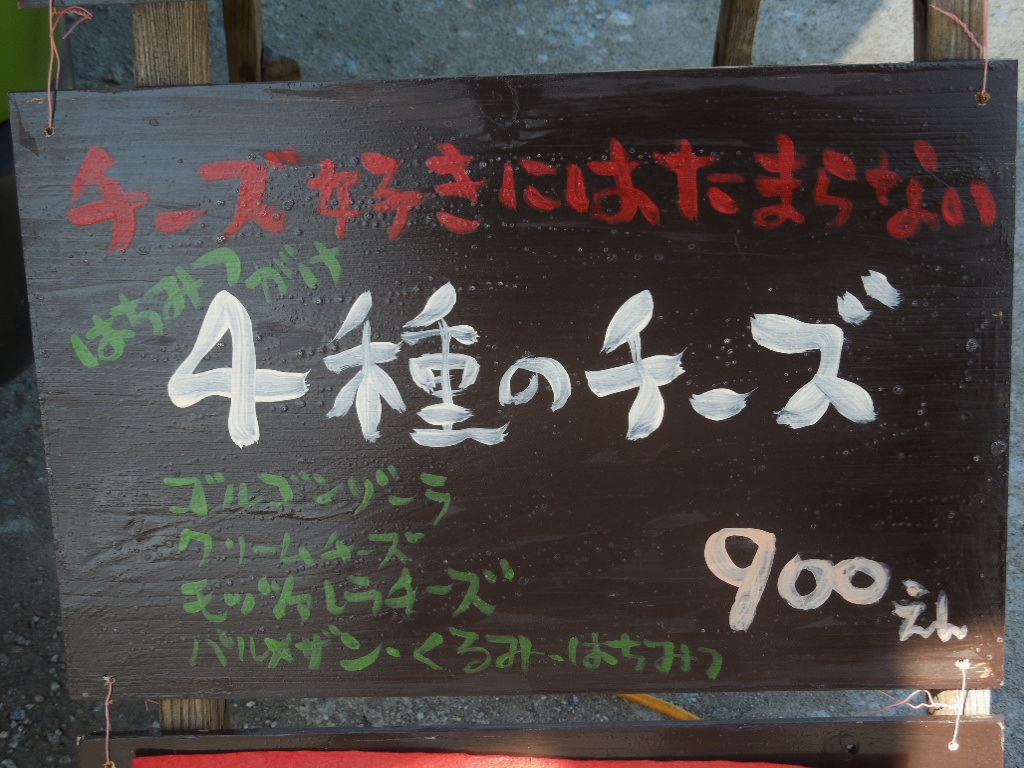 チーズ好きにはたまらない
はちみつがけ
4種のチーズ
ゴルゴンゾーラ
クリームチーズ
モッツァレラチーズ
パルメザン・くるみ・はちみつ
900えん